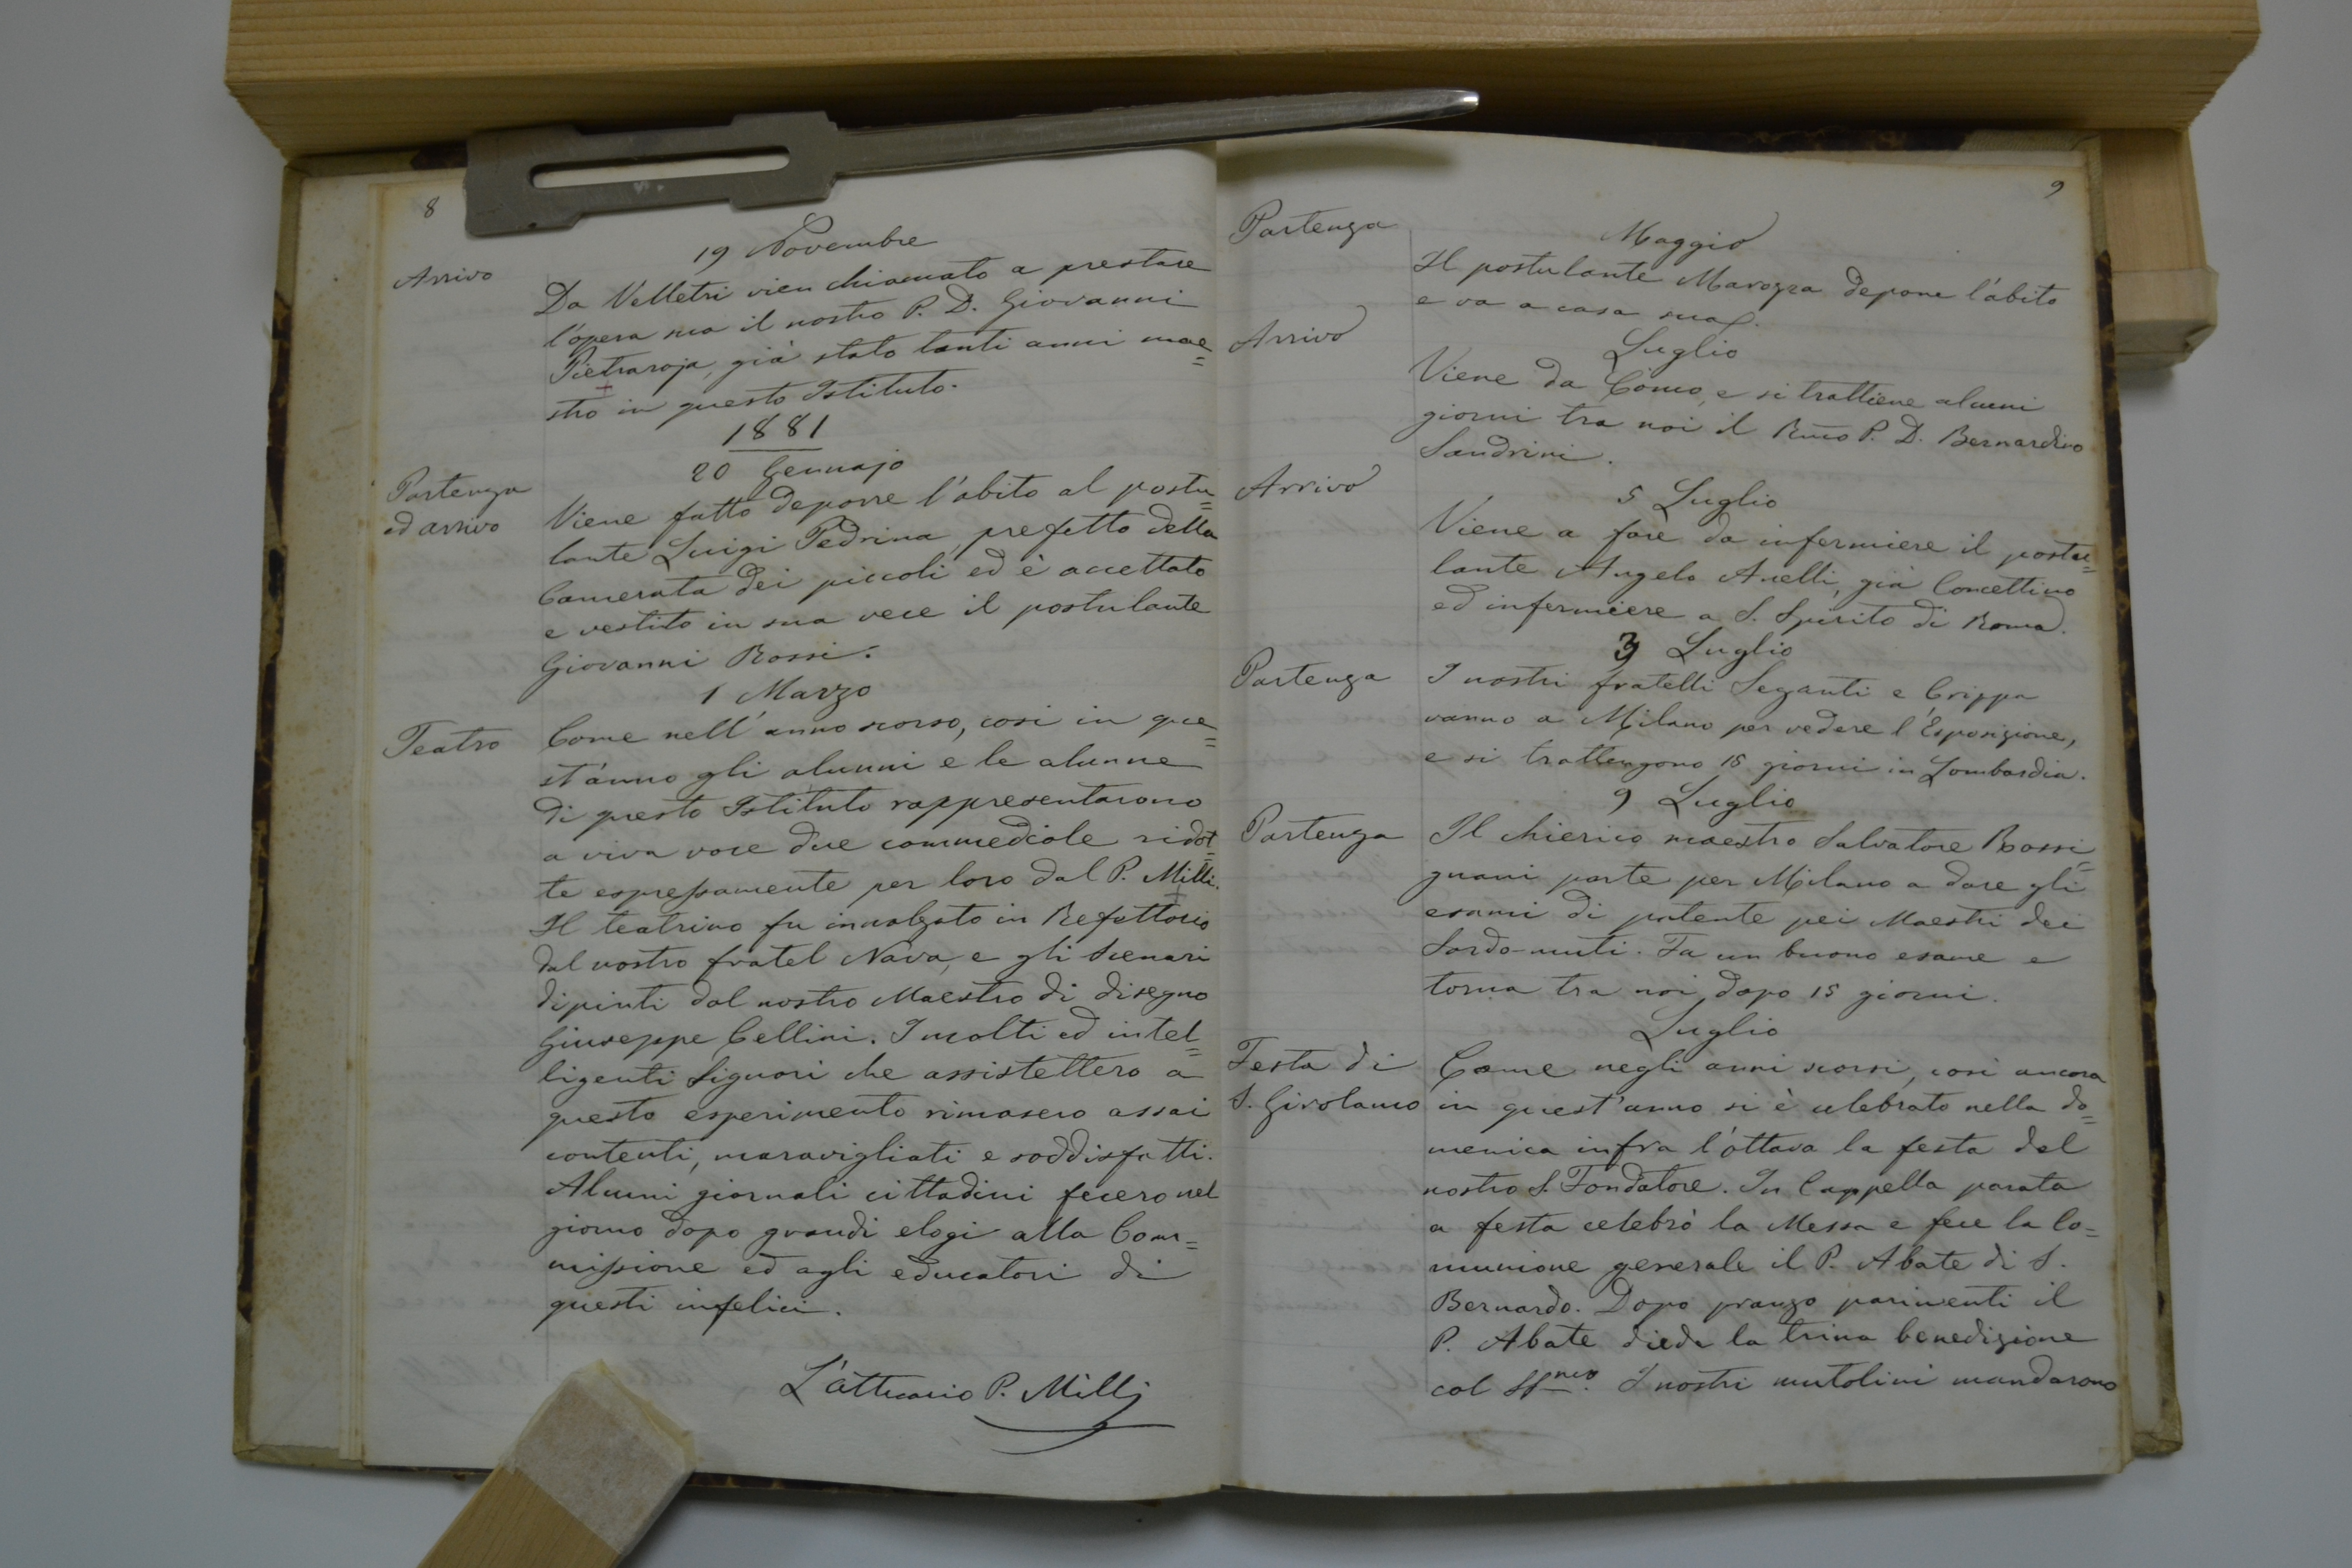 8
19 Novembre
Arrivo
Da Velletri vien chiamato a prestare
l'opera sua il nostro P. D. Giovanni
Pietraroja, già stato tanti anni mae=
stro in questo Istituto.
1881
20 Gennajo
Partenza
ed arrivo
Viene fatto deporre l'abito al postu=
lante Luigi Pedrina, prefetto della
Camerata dei piccoli ed è accettato
e vestito in sua vece il postulante
Giovanni Rossi.
1 Marzo
Teatro
Come nell'anno scorso, così in que=
st'anno gli alunni e le alunne
di questo Istituto rappresentarono
a viva voce due commediole ridot=
te espressamente per loro dal P. Milli.
Il teatrino fu innalzato in Refettorio
dal nostro fratel Nava, e gli Scenari
dipinti dal nostro Maestro di disegno
Giuseppe Cellini. I molti ed intel=
ligenti Signori che assistettero a
questo esperimento rimasero assai
contenti, maravigliati e soddisfatti.
Alcuni giornali cittadini fecero nel
giorno dopo grandi elogi alla Com=
missione ed agli educatori di
questi infelici.
L'attuario P. Milli
9
Maggio
Partenza
Il postulante Marogra depone l'abito
e va a casa sua.
Luglio
Arrivo
Viene da Como, e si trattiene alcuni
giorni tra noi il Rmo P. D. Bernardino
Sandrini.
5 Luglio
Arrivo
Viene a fare da infermiere il postu=
lante Angelo Anelli, già Concettino
ed infermiere a S. Spirito di Roma.
Luglio
Partenza
I nostri fratelli Seganti e Crippa
vanno a Milano per vedere l'Esposizione,
e si trattengono 15 giorni in Lombardia.
9 Luglio
Partenza
Il chierico maestro Salvatore Rossi=
gnani parte per Milano a dare gli
esami di patente pei Maestri dei
Sordo-muti. Fa un buono esame e
torna tra noi dopo 15 giorni.
Luglio
Festa di
S. Girolamo
Come negli anni scorsi, così ancora
in quest'anno si è celebrato nella do=
menica infra l'ottava la festa del
nostro S. Fondatore. In Cappella parata
a festa celebrò la Messa e fece la Co=
munione generale il P. Abate di S.
Bernardo. Dopo pranzo parimenti il
P. Abate diede la trina benedizione
col SSmo. I nostri mutolini mandarono